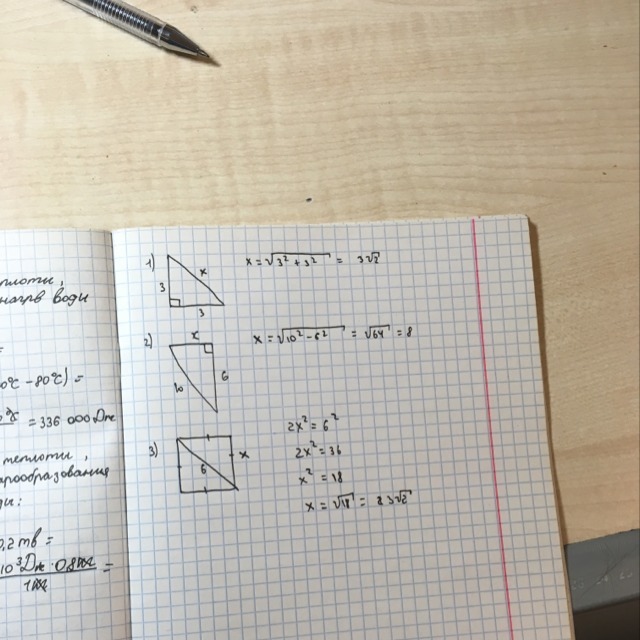 еплоти,
нагрв води
=
0°C - 80°C) =
°C = 336 000 Дж
теплоти,
арообразование
ди:
0,2 mв =
10³Дж · 0,8кг =
1кг
1) 3 x 3 x = √3² + 3² = 3√2
2) x 10 6 x = √10² - 6² = √64 = 8
3) 6 x 2x² = 6²
2x² = 36
x² = 18
x = √18 = 3√2